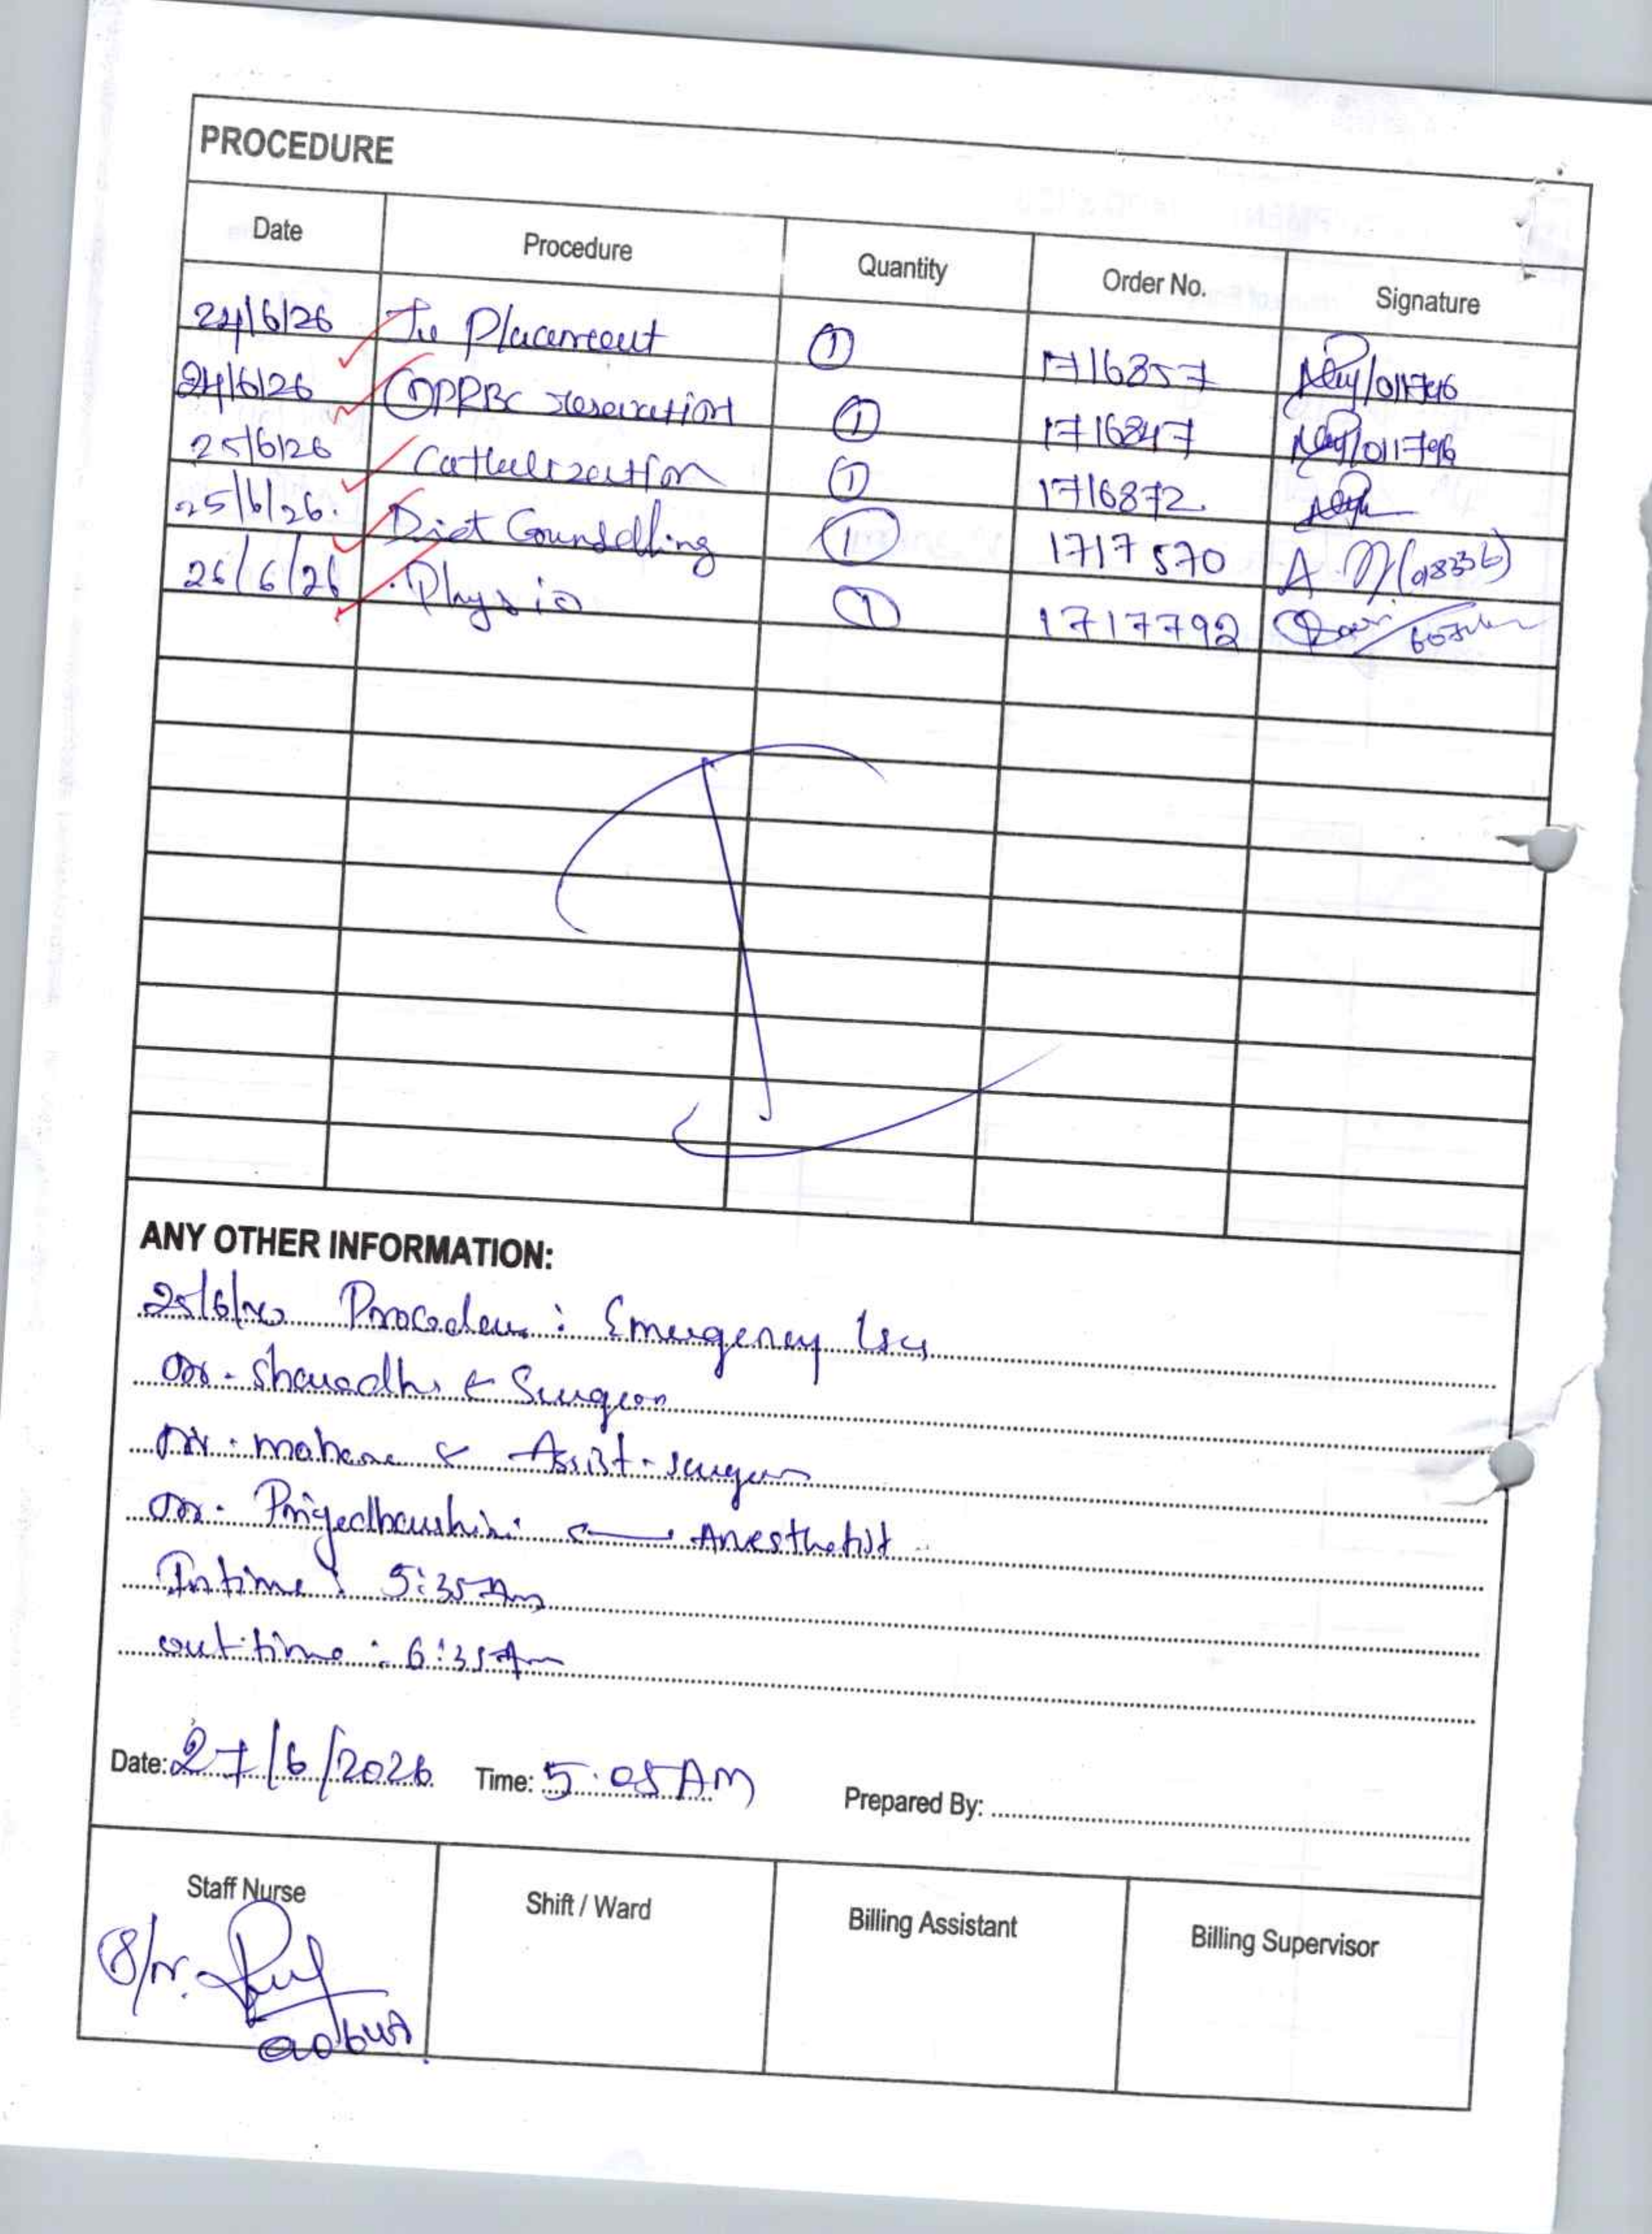 PROCEDURE
Date Procedure Quantity Order No. Signature
24/6/26 Placement 1 1716857
24/6/26 PRBC reservation 1 1716847 /011796
25/6/26 1 1716872.
25/6/26. Diet Counselling 1 1717570 A
26/6/26 Physio 1 1717792
ANY OTHER INFORMATION:
25/6/26 : Emergency
Dr. ← Surgeon
Dr. ← Assist.
Dr. ← Anesthetist
In time : 5:35 Am
out time : 6:35 Am
Date: 27/6/2026 Time: 5:05 AM Prepared By:
Staff Nurse Shift / Ward Billing Assistant Billing Supervisor
S/N.